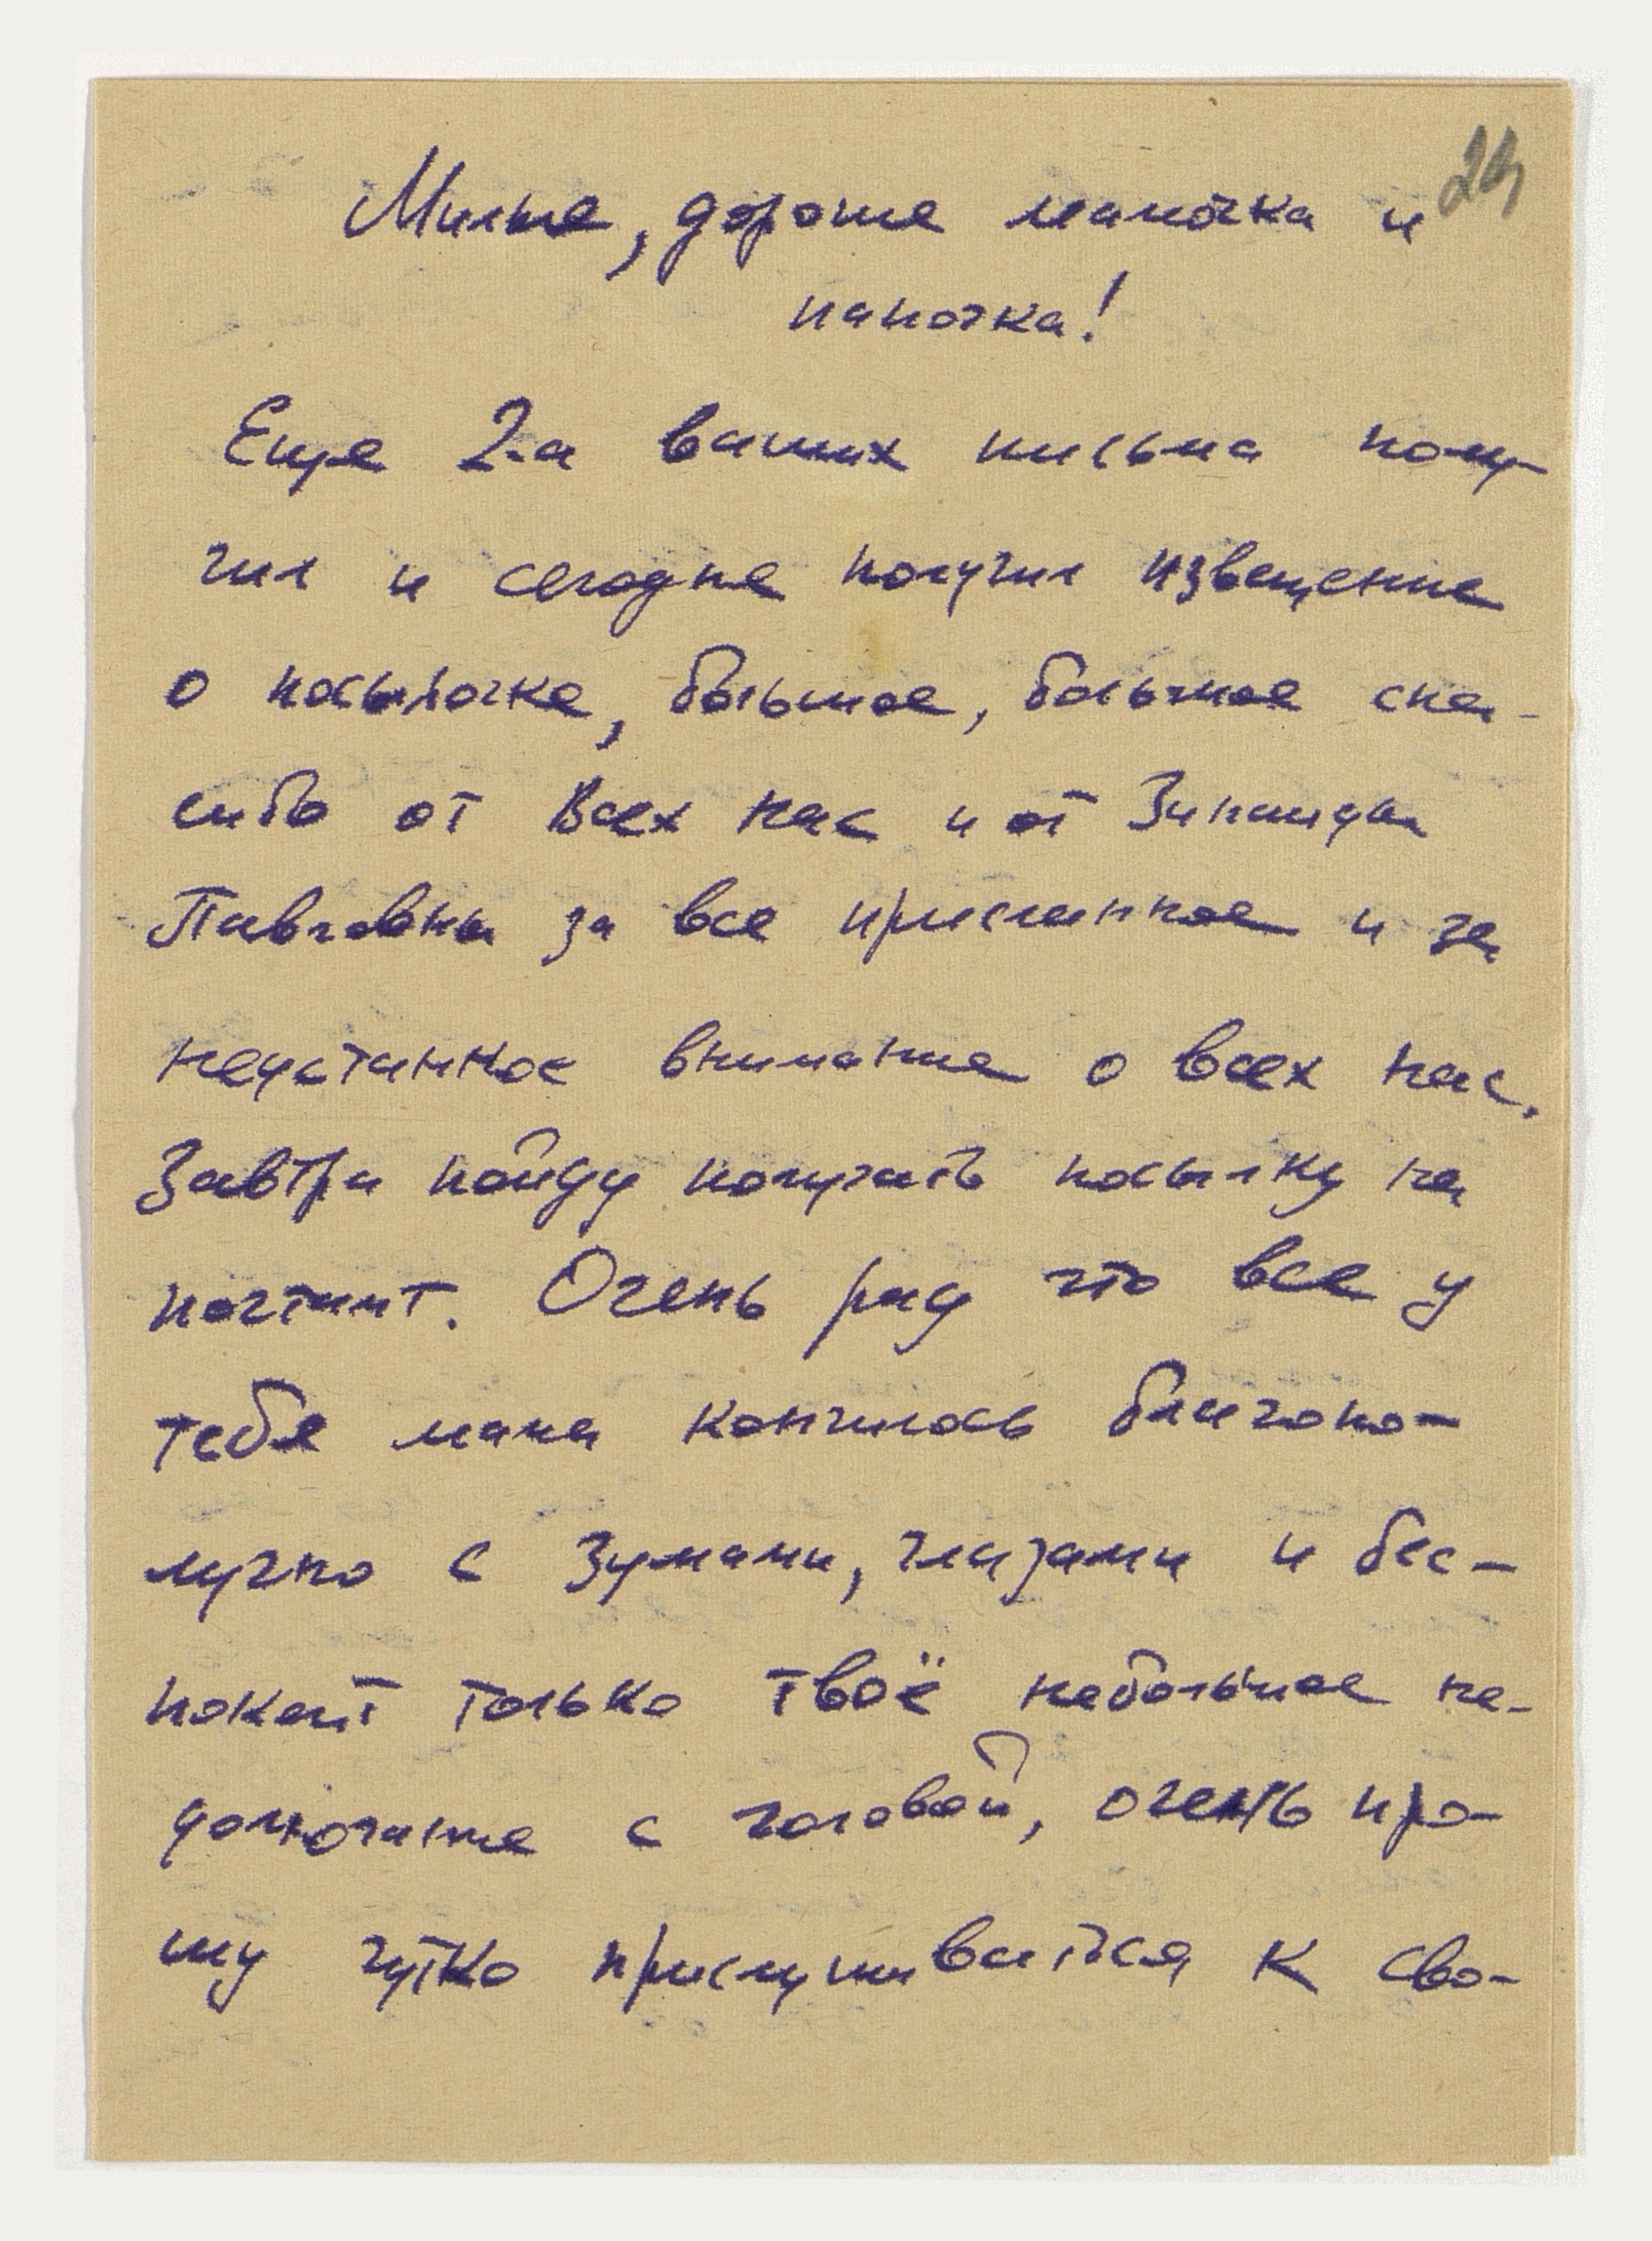 24
Милые, дорогие мамочка и
папочка!
Еще 2-а ваших письма полу-
чил и сегодня получил извещение
о посылочке, большое, большое спа-
сибо от всех нас и от Зинаиды
Павловны за все присланное и за
неустанное внимание о всех нас.
Завтра пойду получать посылку на
почтамт. Очень рад что все у
тебя мама кончилось благопо-
лучно с зубами, глазами и бес-
покоит только твоё небольшое не-
домогание с головой, очень про-
шу чутко прислушиваться к сво-